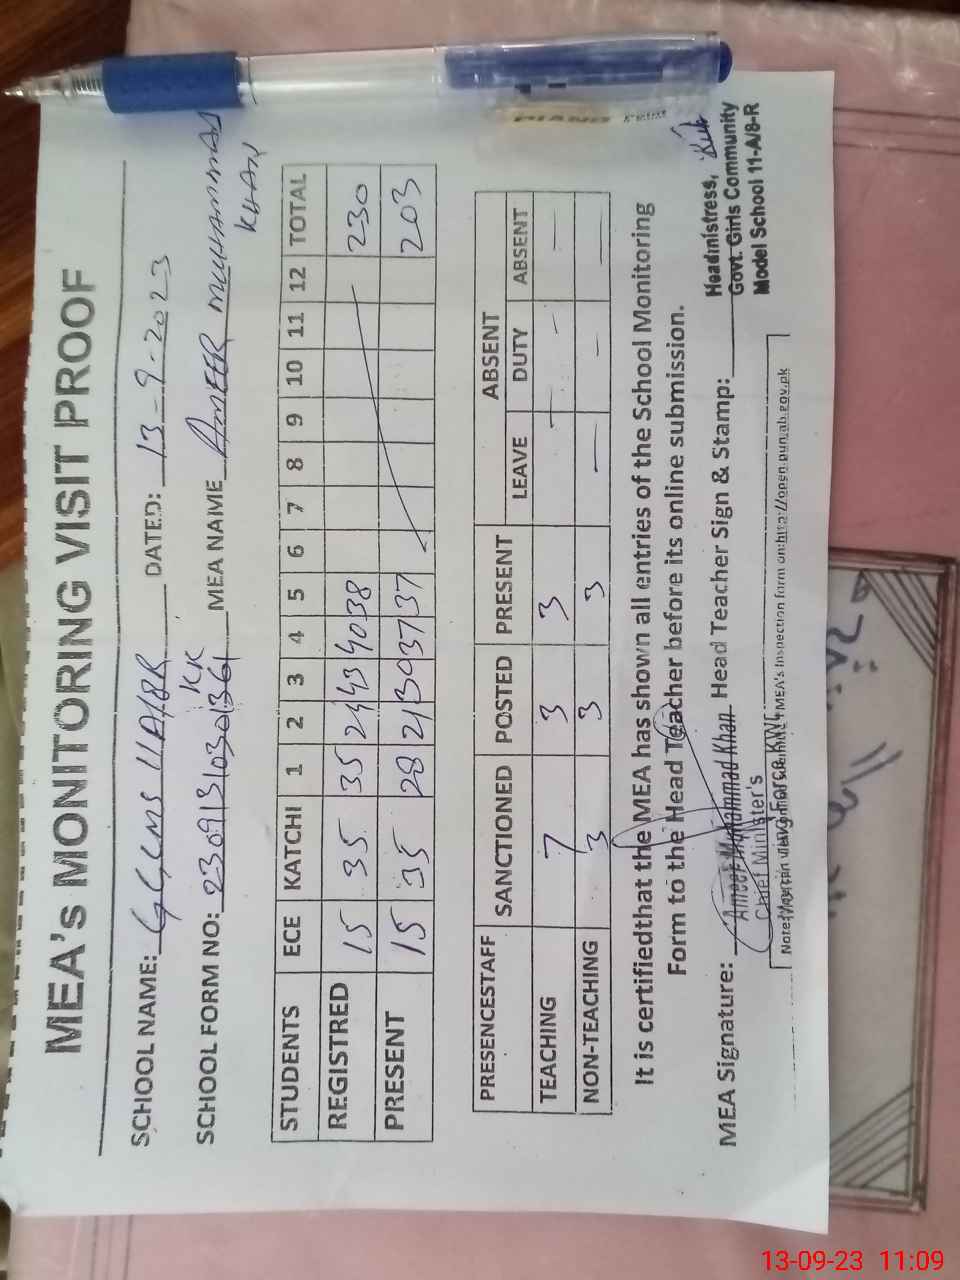 MEA's MONITORING VISIT PROOF
SCHOOL NAME: GGCMS 11A/8R DATED: 13-9-2023
KK
SCHOOL FORM NO: MEA NAME AMEER MUHAMMAD
KHAN
STUDENTS ECE KATCHI 1 2 3 4 5 6 7 8 9 10 11 12 TOTAL
REGISTRED 15 35 35 24 43 40 38 230
PRESENT 15 35 28 21 30 37 37 203
PRESENCESTAFF SANCTIONED POSTED PRESENT ABSENT
LEAVE DUTY ABSENT
TEACHING 7 3 3 — — —
NON-TEACHING 3 3 3 — — —
It is certifiedthat the MEA has shown all entries of the School Monitoring
Form to the Head Teacher before its online submission.
MEA Signature: Ameer Muhammad Khan Head Teacher Sign & Stamp:
Chief Minister's
Force KWL
Headmistress,
Govt. Girls Community
Model School 11-A/8-R
MEA's Inspection form on:http://open.punjab.gov.pk
PIANO
13-09-23 11:09